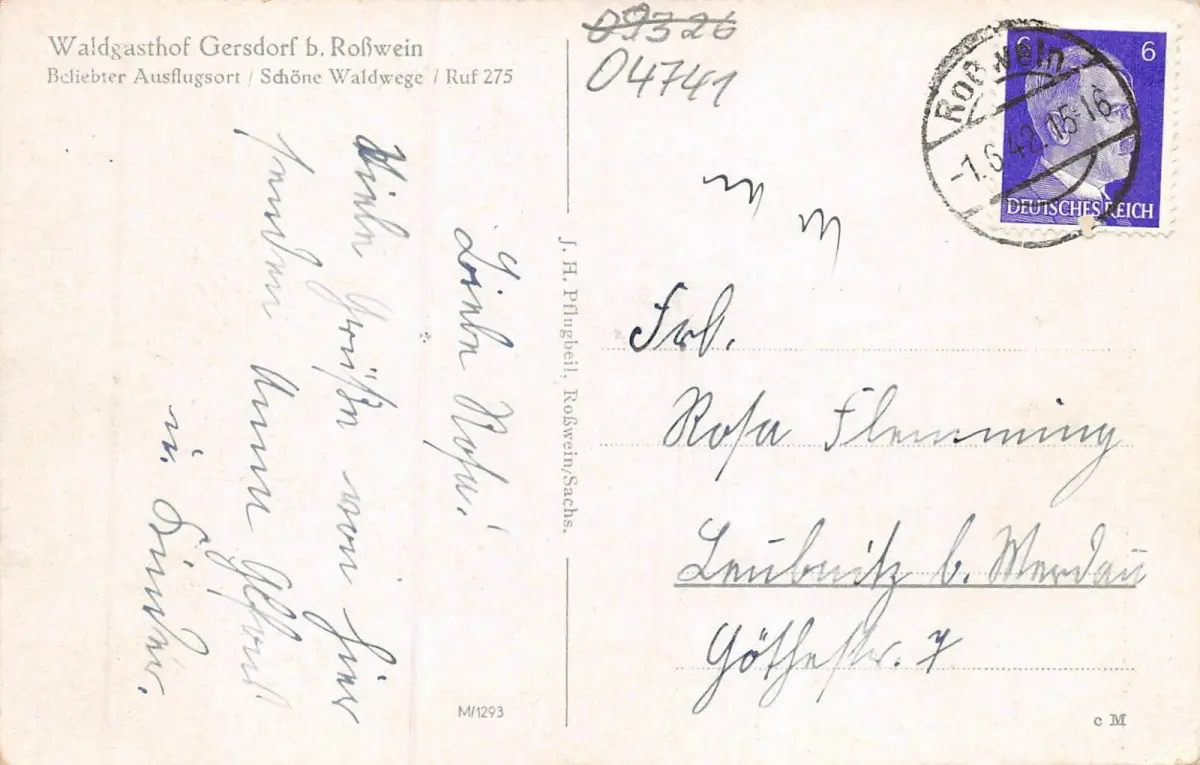 Waldgasthof Gersdorf b. Roßwein
Beliebter Ausflugsort / Schöne Waldwege / Ruf 275
09326
04741
Roßwein
-1.6.42.15-16
6 6
DEUTSCHES REICH
Liebe Rosa!
Viele Grüße von hier
senden Anna Gehred
u. Kinder.
J. H. Pflugbeil, Roßwein/Sachs.
Frl.
Rosa Flemming
Leubnitz b. Werdau
Göthestr. 7
M/1293
c M